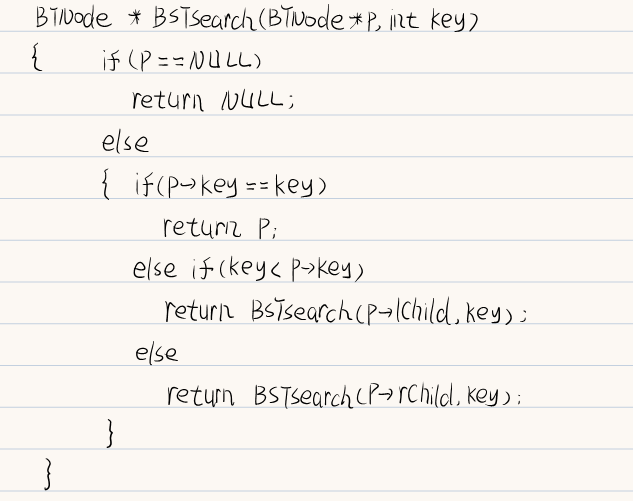 BTNode * BSTsearch(BTNode*P, int key)
{ if (P==NULL)
return NULL;
else
{ if(P→key ==key)
return P;
else if(key< P→key)
return BSTsearch(P→lChild, key);
else
return BSTsearch(P→rChild, key);
}
}